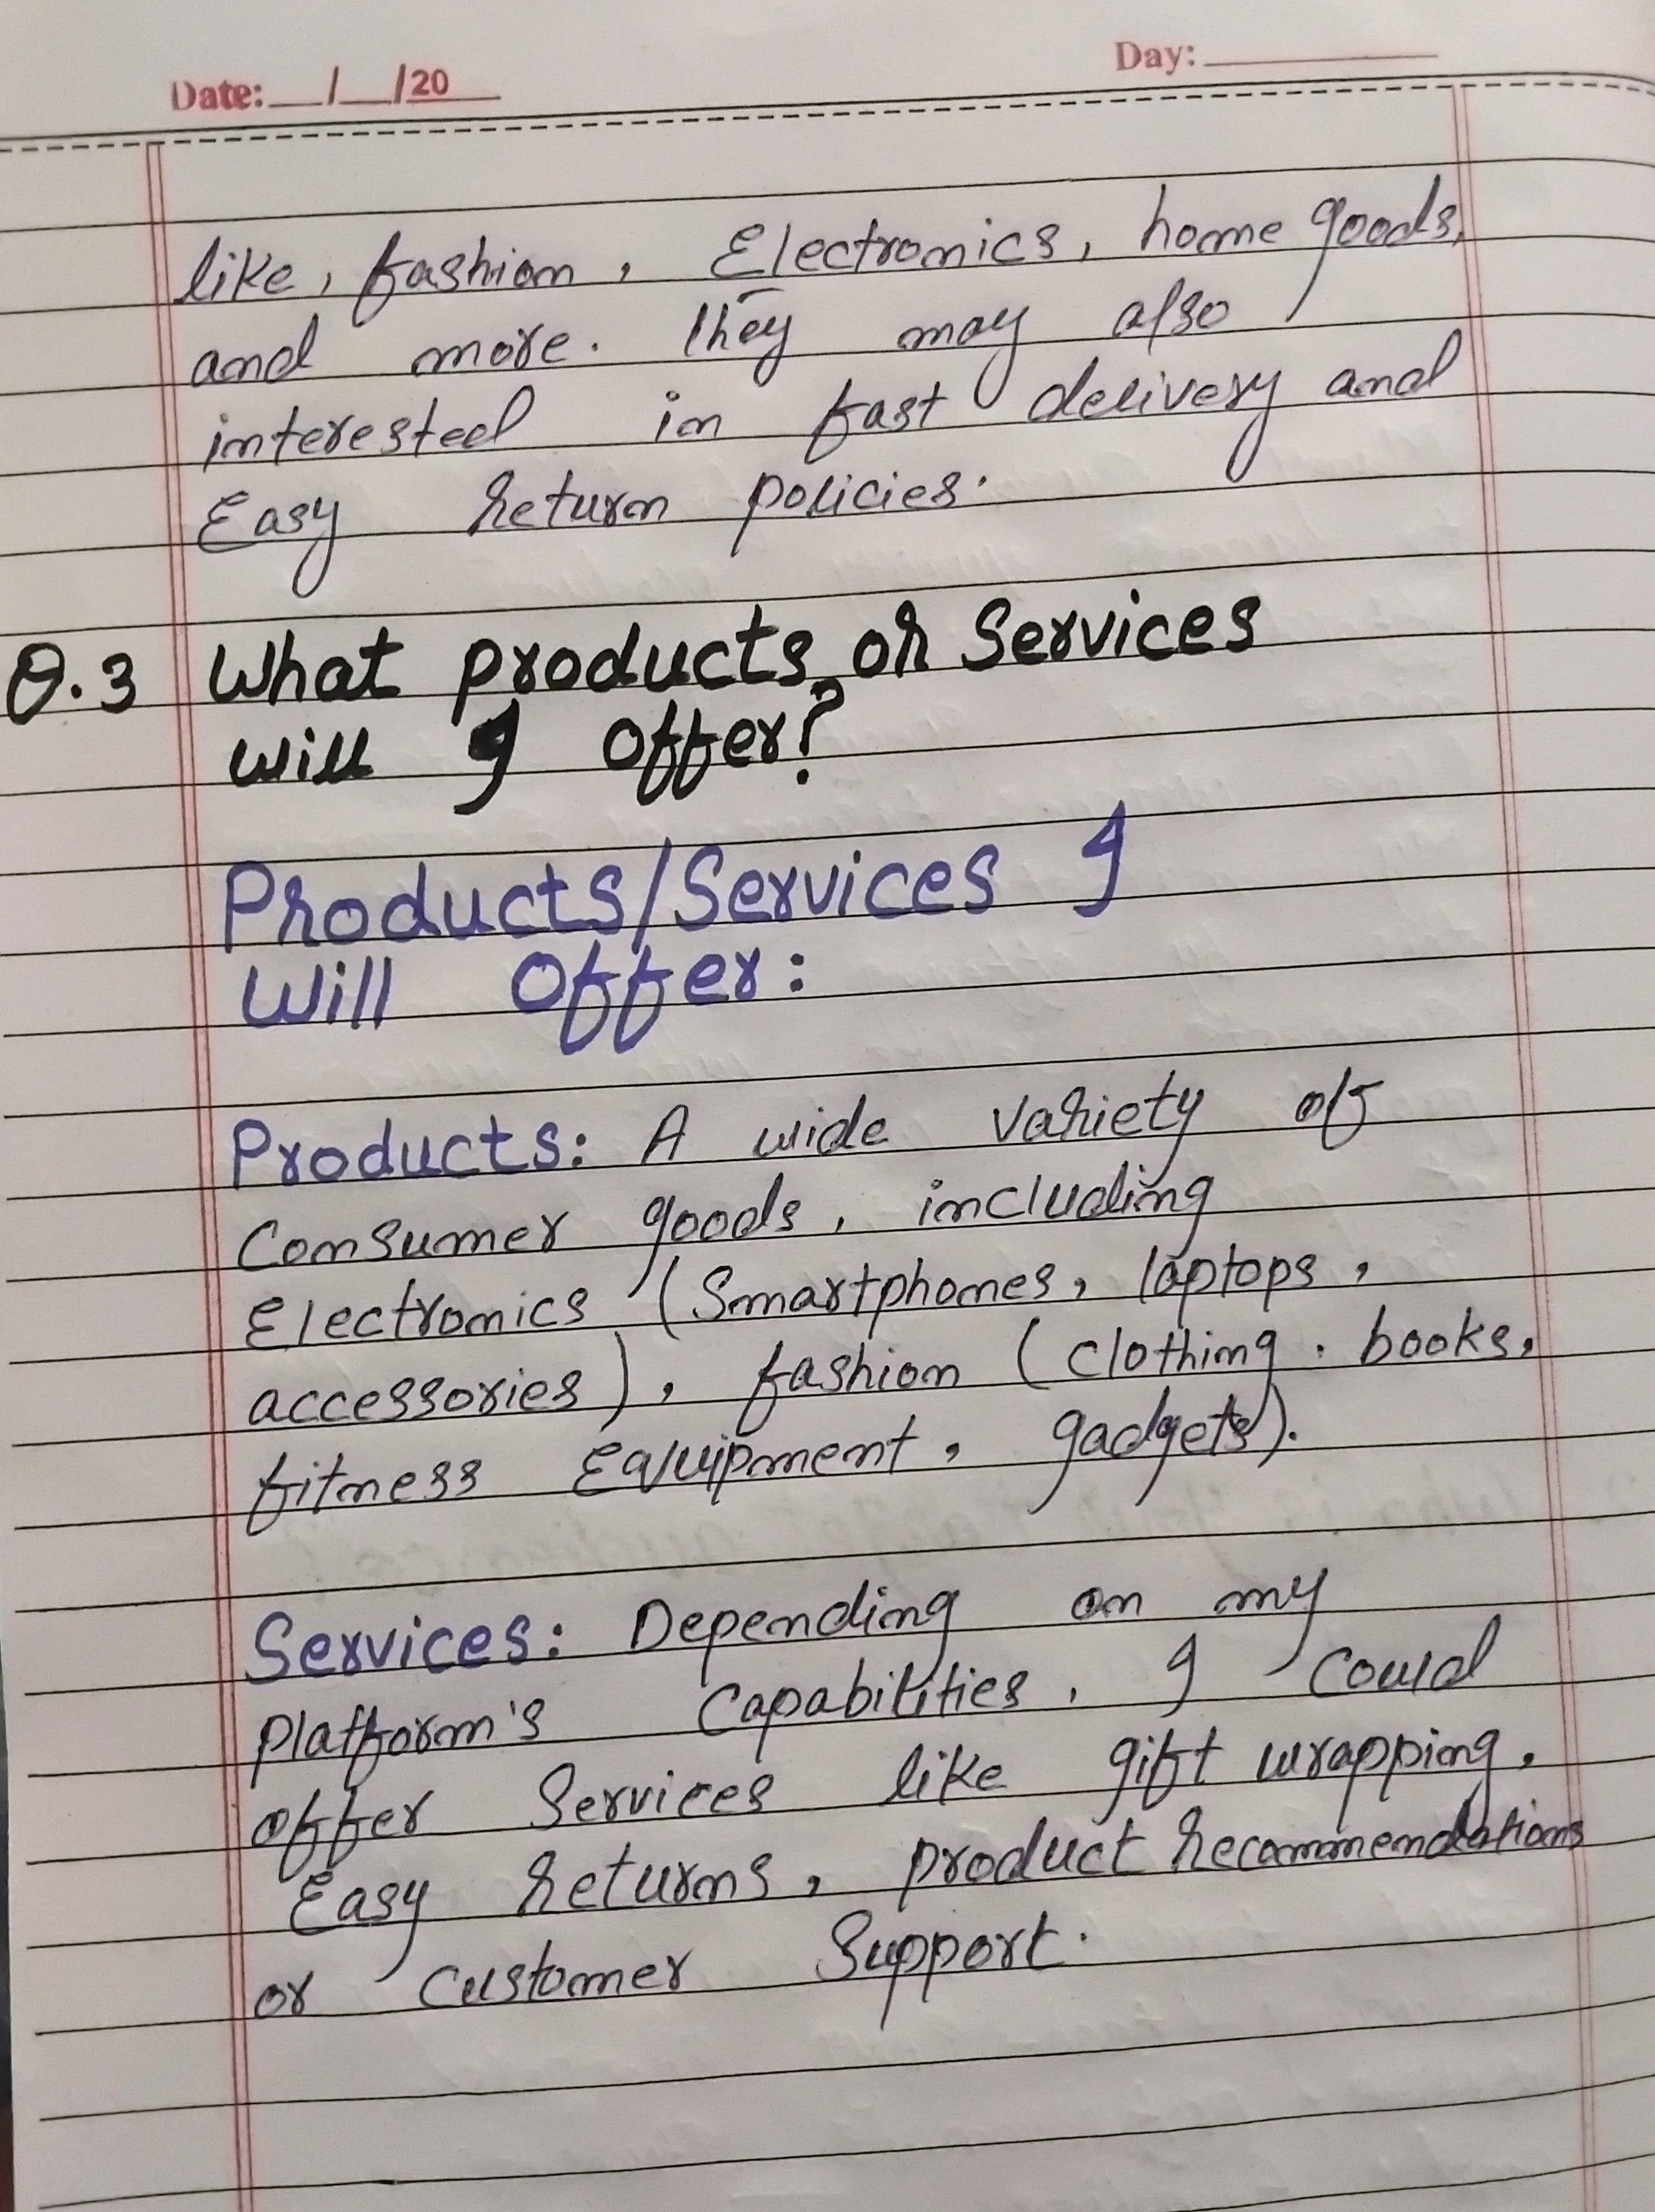 Date: __/__/20__
Day: ______
like, fashion, Electronics, home goods,
and more. They may also
interested in fast delivery and
Easy Return policies.
Q.3 What products or Services
will I offer?
Products/Services I
Will Offer:
Products: A wide variety of
Consumer goods, including
Electronics (Smartphones, laptops,
accessories), fashion (clothing. books,
fitness Equipment, gadgets).
Services: Depending on my
Platform's Capabilities, I Could
offer Services like gift wrapping,
Easy Returns, product Recommendations
or Customer Support.